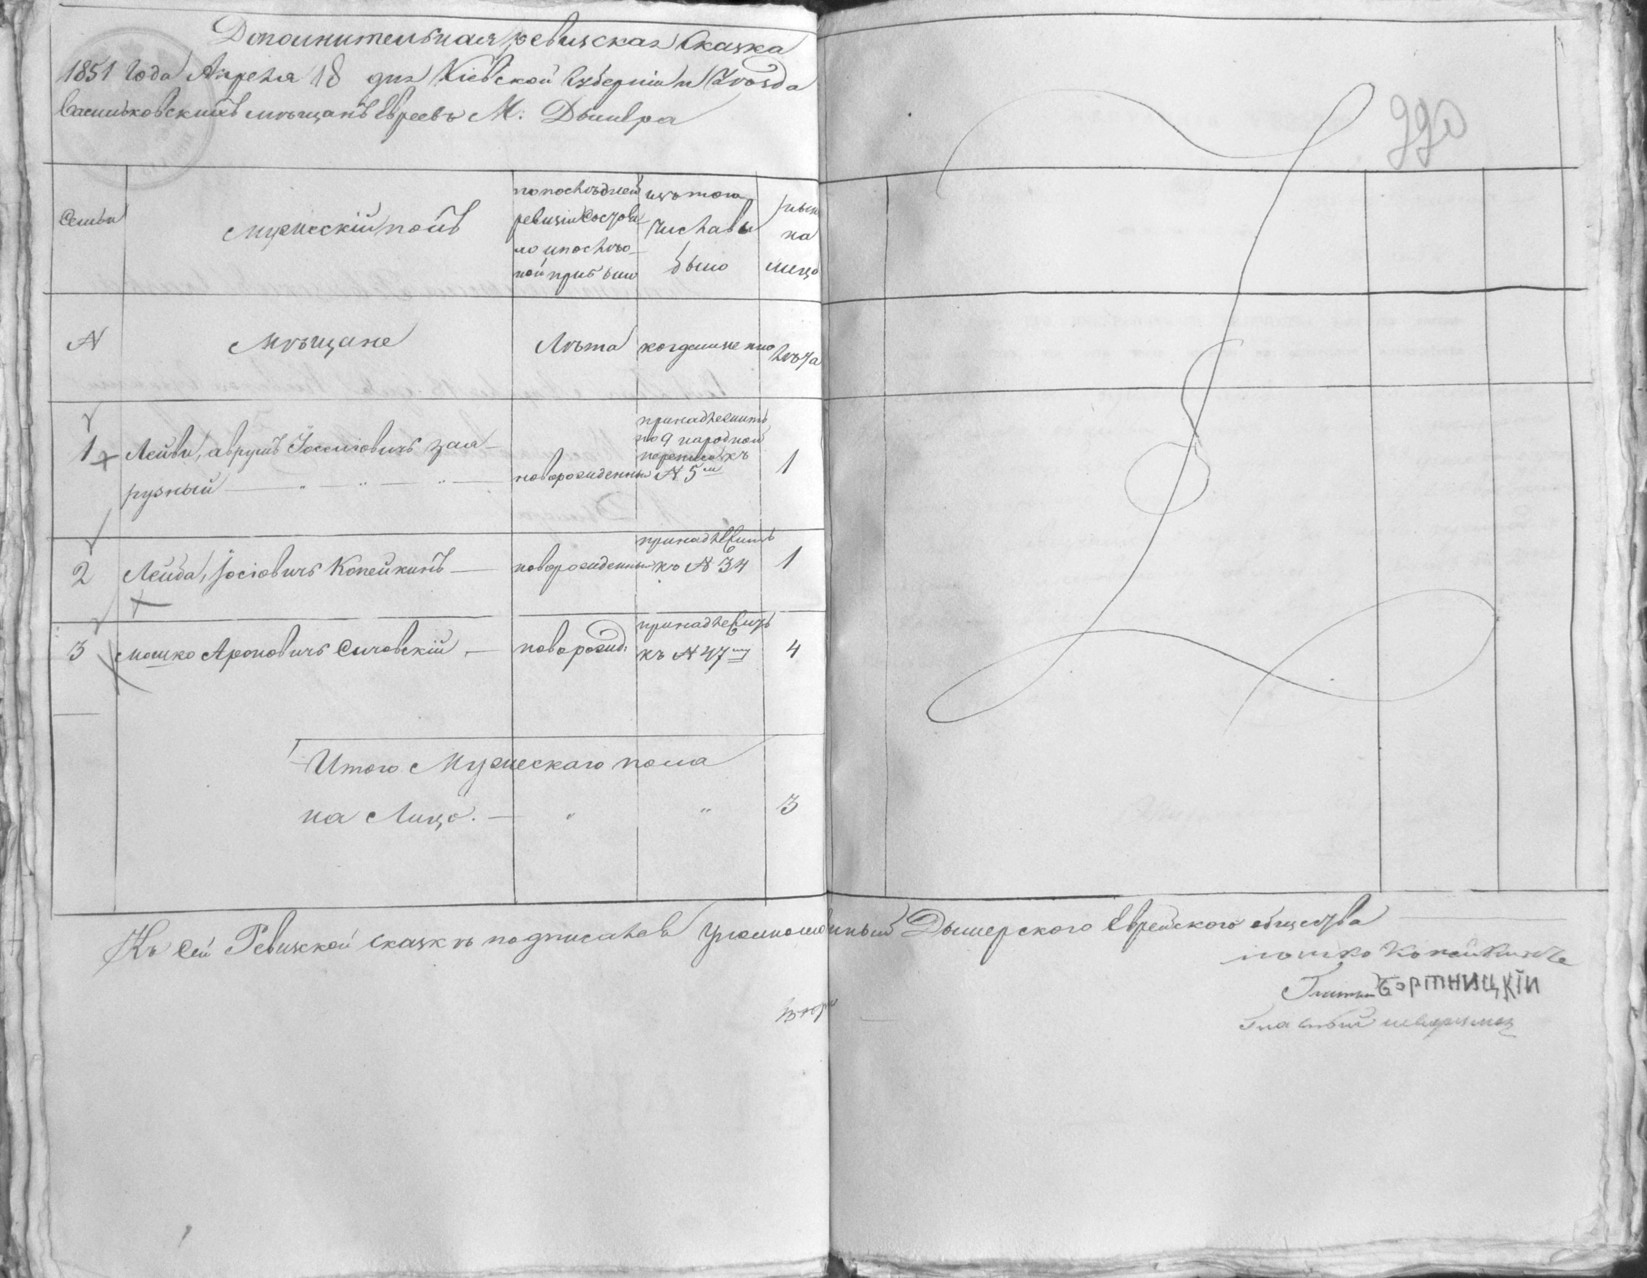 Дополнительная ревизская Сказка
1851 года Апреля 18 дня Кіевской Губерніи и Уѣзда
Васильковскихъ мѣщанъ Евреевъ М. Дымера
990
Семьи
Мужескій полъ
по послѣдней
ревизіи Состоя
ло и послѣ о
ной прибыло
изъ того
числа вы
было
ныне
на
лицо
№
Мѣщане
Лѣта
когда именно
Лѣта
1 Лейви, Аврумъ Іоселіовичъ Зала
рузный
новорожденный
принадлежитъ
по 9 народной
переписи къ
№ 5му
1
2 Лейба, Іосіовичъ Копейкинъ
новорожденный
принадлежитъ
къ № 34
1
3 Мошко Ароновичъ Сичовскій
новорожд.
принадлежитъ
къ № 47му
4
Итого Мужескаго пола
на Лицо. — " " 3
Къ Сей Ревизской сказкѣ подписалсѧ Уполномоченный Дымерского Еврейского общества
мошко Копейкинъ
Бортницкіи